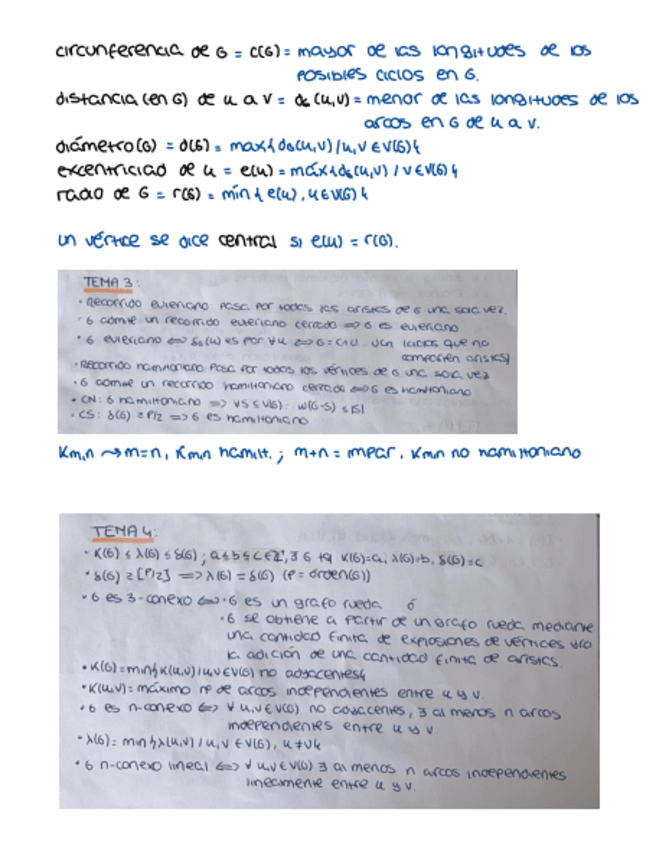 circunferencia de G = c(G) = mayor de las longitudes de los
posibles ciclos en G.
distancia (en G) de u a v = d_G(u,v) = menor de las longitudes de los
arcos en G de u a v.
diámetro(G) = d(G) = max{d_G(u,v) / u,v ∈ V(G)}
excentricidad de u = e(u) = máx{d_G(u,v) / v ∈ V(G)}
radio de G = r(G) = mín{e(u), u ∈ V(G)}
un vértice se dice central si e(u) = r(G).
TEMA 3:
· Recorrido euleriano pasa por todas las aristas de G una sola vez.
· G admite un recorrido euleriano cerrado => G es euleriano
· G euleriano <=> δ_G(u) es par ∀u <=> G = C1 U... U Cn (ciclos que no
comparten aristas)
· Recorrido hamiltoniano pasa por todos los vértices de G una sola vez
· G admite un recorrido hamiltoniano cerrado <=> G es hamiltoniano
· CN: G hamiltoniano => ∀S ⊆ V(G): w(G-S) ≤ |S|
· CS: δ(G) ≥ p/2 => G es hamiltoniano
Km,n ⇝ m=n, Km,n hamilt.; m+n = impar, Km,n no hamiltoniano
TEMA 4:
· K(G) ≤ λ(G) ≤ δ(G); a ≤ b ≤ c ∈ Z⁺, ∃ G tq K(G)=a, λ(G)=b, δ(G)=c
· δ(G) ≥ [p/2] => λ(G) = δ(G) (p = orden(G))
· G es 3-conexo <=> · G es un grafo rueda ó
· G se obtiene a partir de un grafo rueda mediante
una cantidad finita de explosiones de vértices y/o
la adición de una cantidad finita de aristas.
· K(G) = min{K(u,v) / u,v ∈ V(G) no adyacentes}
· K(u,v) = máximo nº de arcos independientes entre u y v.
· G es n-conexo <=> ∀ u,v ∈ V(G) no adyacentes, ∃ al menos n arcos
independientes entre u y v.
· λ(G) = min{λ(u,v) / u,v ∈ V(G), u≠v}
· G n-conexo lineal <=> ∀ u,v ∈ V(G) ∃ al menos n arcos independientes
linealmente entre u y v.